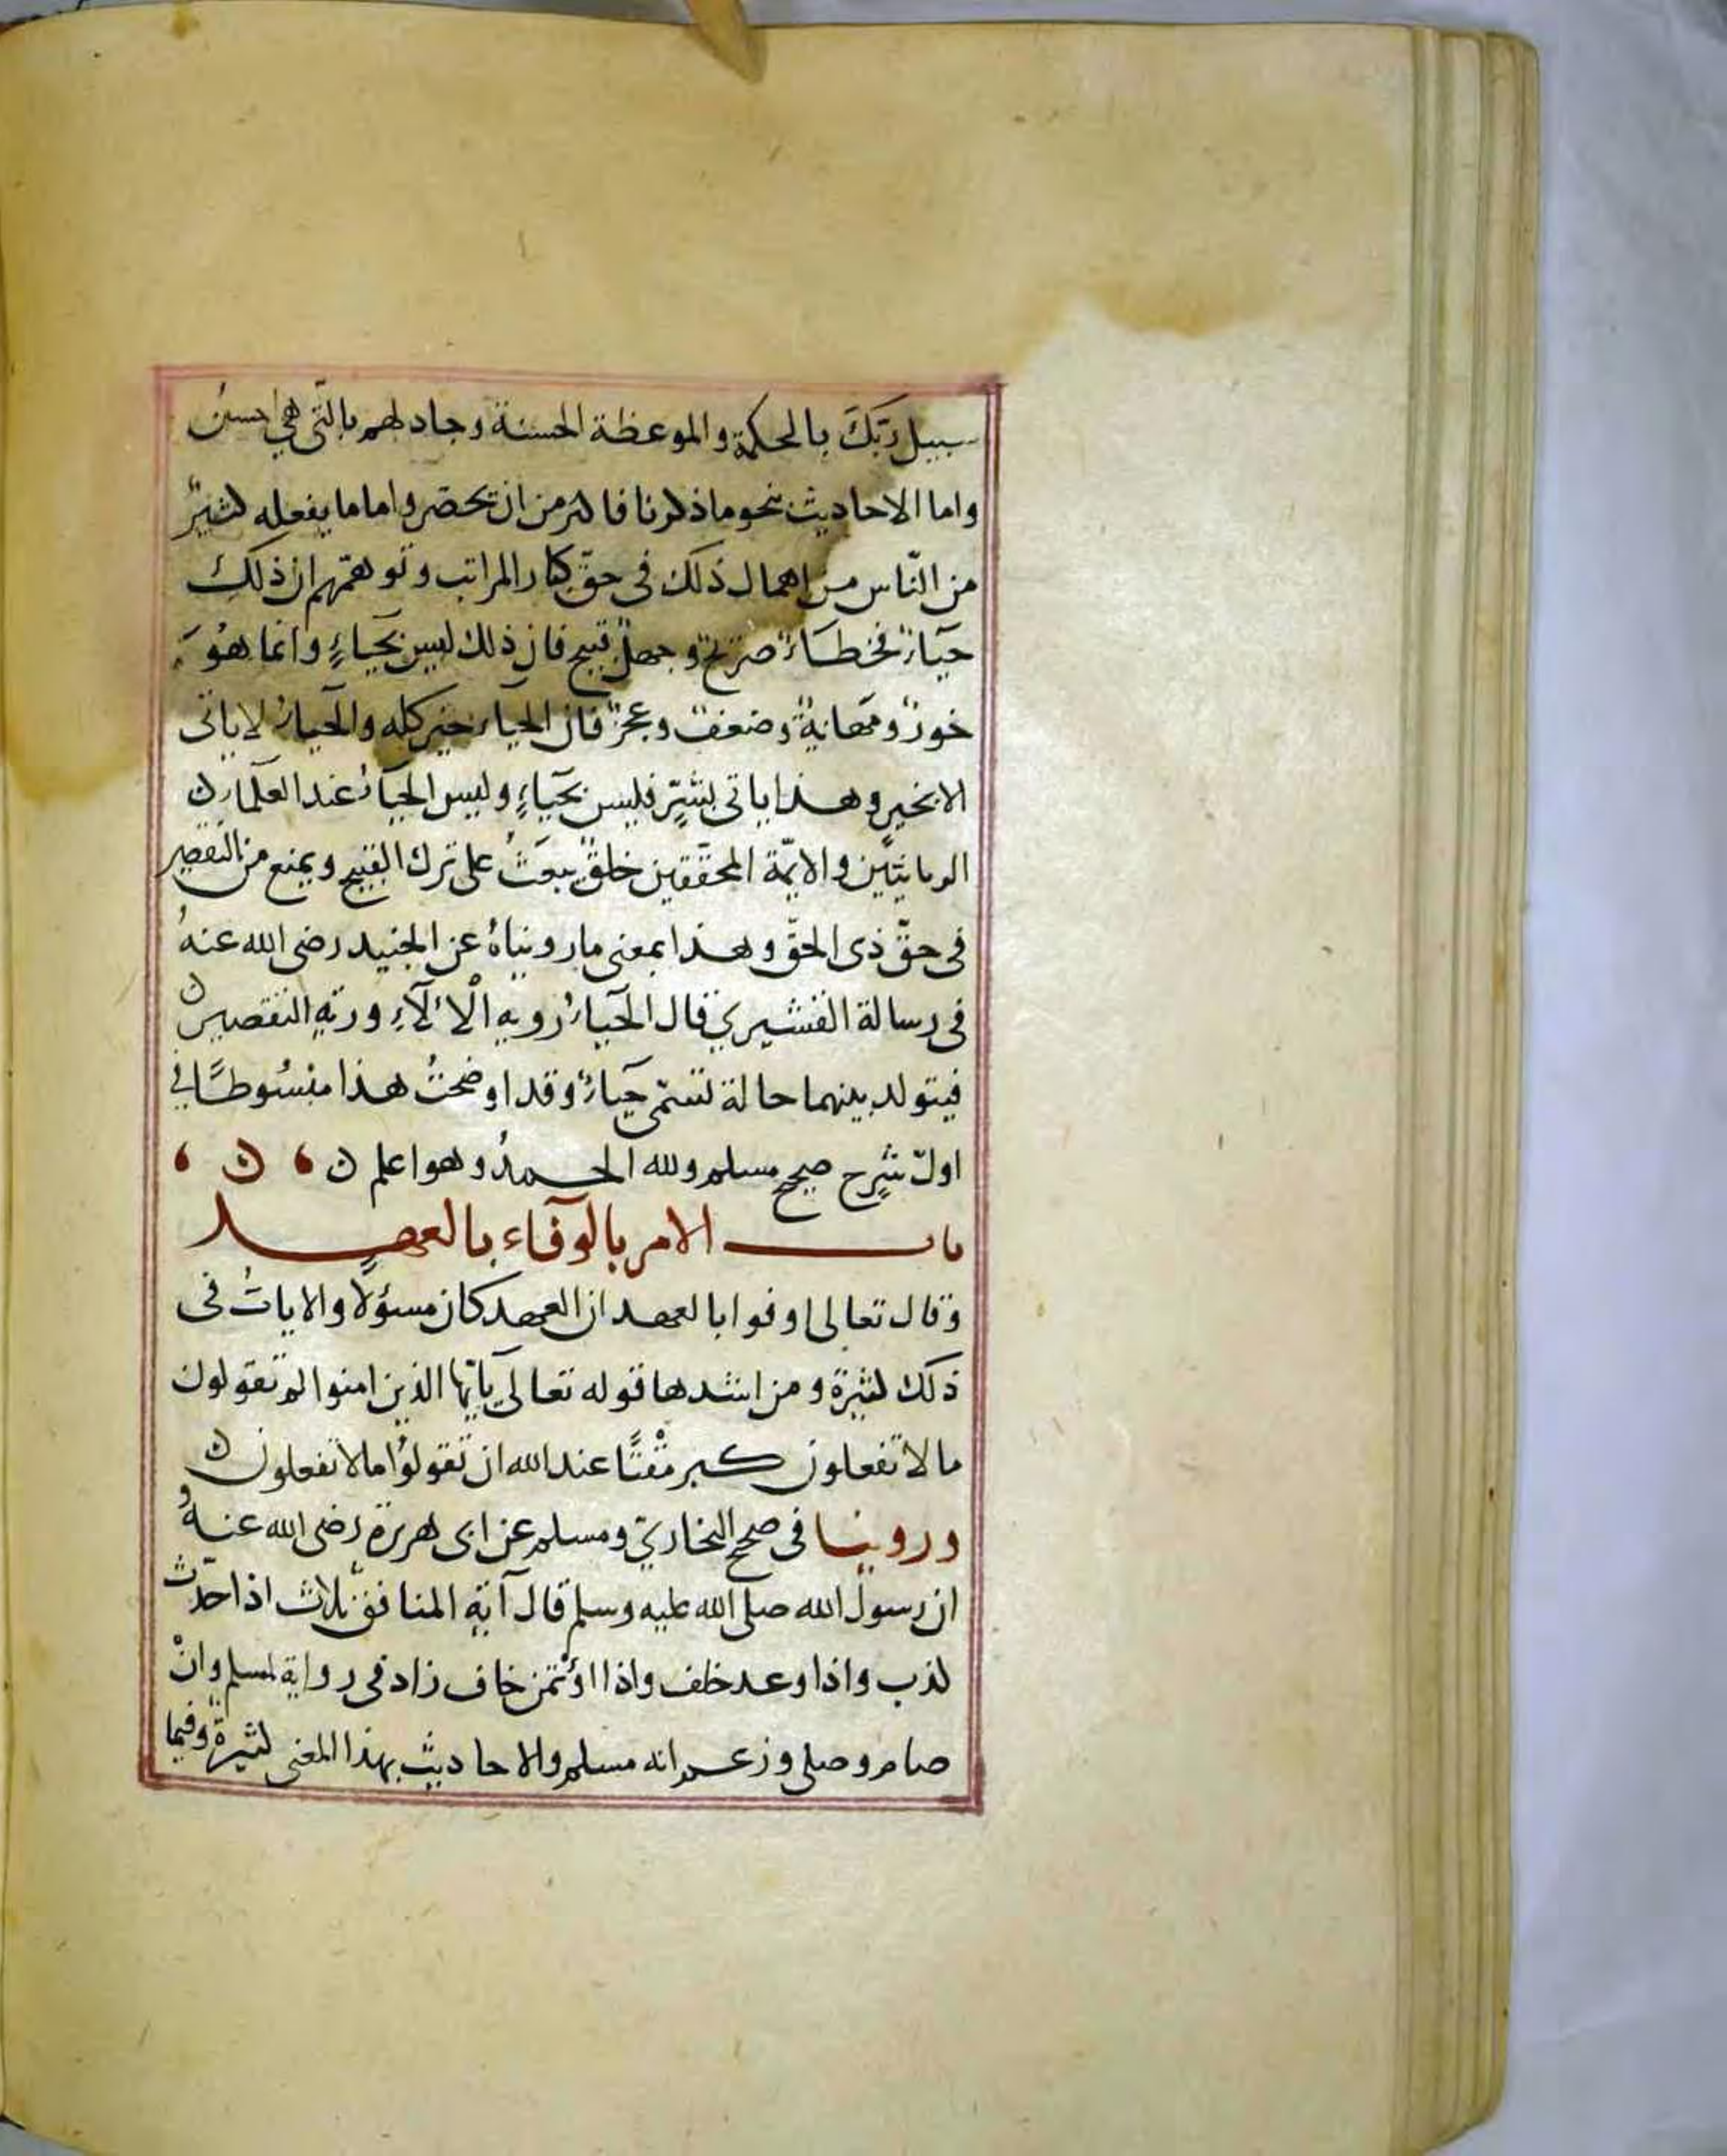 سبيل ربّك بالحكمة والموعظة الحسنة وجادلهم بالتى هي احسن
واما الاحاديث بنحو ماذكرنا فاكثر من ان تحصر واما ما يفعله كثيرٌ
من النّاس من اهمال ذلك فى حقّ كبار المراتب وتوهّمهم ان ذلك
حيآءٌ فخطاءٌ صريحٌ وجهلٌ قبيح فان ذلك ليس بحيآءٍ وانما هُوَ
خورٌ ومهانةٌ وضعفٌ وعجزٌ فان الحياء خير كله والحياءُ لا ياتى
الا بخيرٍ وهذا ياتى بشرٍّ فليس بحيآءٍ وليس الحيآءُ عند العلمآء ن
الربانيّين والايمّة المحققين خلقٌ يبعثُ على ترك القبيح ويمنع من التقصير
فى حقّ ذى الحقّ وهذا بمعنى مارويناهُ عن الجنيد رضى الله عنهُ
فى رسالة القشيري قال الحيآءُ روية الْالآءِ وريةِ التقصير ن
فيتولد بينهما حالة تسمّى حيآءً وقد اوضحتُ هذا مبسُوطًا في
اولّ شرحِ صحيح مسلم ولله الحمدُ وهو اعلم ن ، ن ،
باب الامر بالوفآء بالعهد
وقال تعالى اوفوا بالعهد ان العهد كان مسؤلًا والاياتُ فى
ذلك كثيرة ومن اشدها قوله تعالى يآيّها الذين امنوا لم تقولون
ما لا تفعلون كبر مقْتًا عند الله ان تقولوا ما لا تفعلون ن
وروينا فى صحيح البخاريّ ومسلم عن ابى هريرة رضى الله عنهُ
ان رسول الله صلى الله عليه وسلم قال آية المنافق ثلاث اذا حدّث
كذب واذا وعد خلف واذا اؤتمن خاف زاد فى رواية لمسلم وانْ
صام وصلى وزعم انه مسلم والاحاديث بهذا المعنى كثيرةٌ وفيما